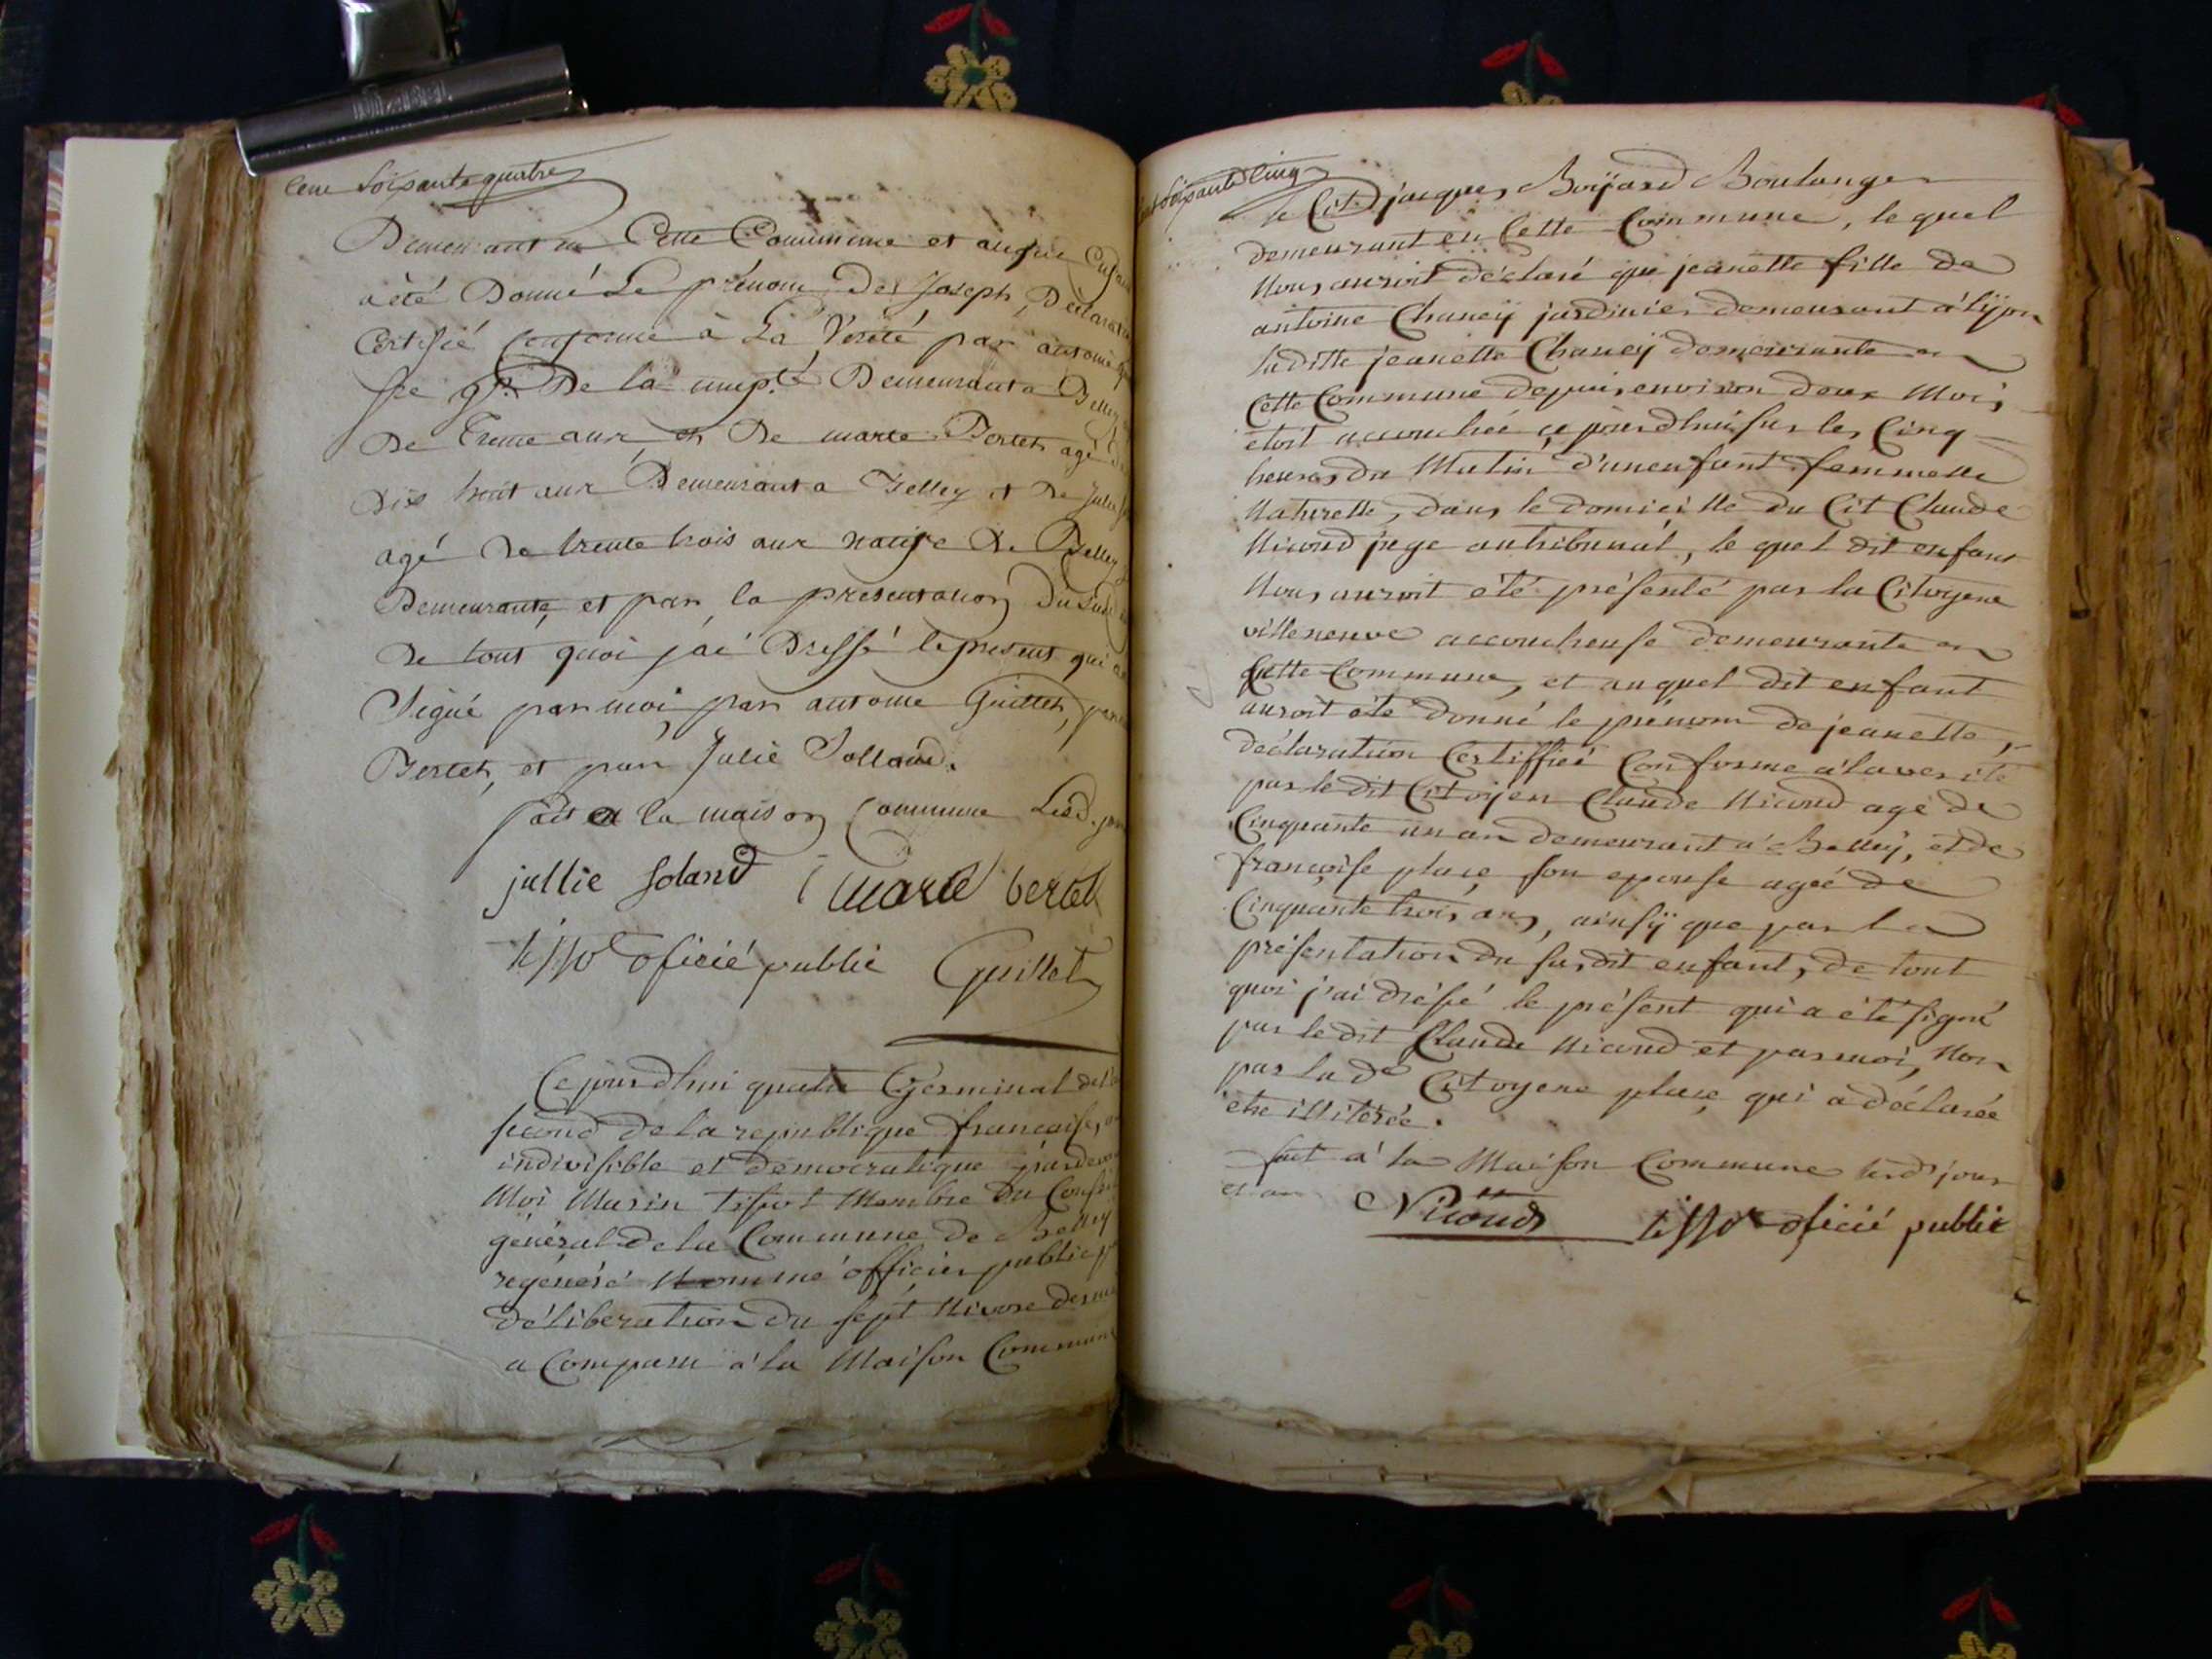 Cent Soixante quatre
Demeurant en Cette Commune et auquel Enfant
a été Donné Le prénom De Joseph, Declaration
Certifié Conforme à La Verité par antoine
De la Demeurant a Belley
De Trente ans et De marie Bertet agé de
Dix huit ans Demeurant a Belley et De Julie
agé De trente trois ans native De Belley
Demeurante, et par la presentation Dusud
De tout quoi j'ai Dressé le present qui a
Signé par moi, par antoine Guillet,
Bertet, et par Julie Solland.
fait a la maison Commune Lesd. jour
jullie soland marie bertet
tissot oficié public Guillet
Cejourdhui quatre Germinal de l'an
second de la republique francaise, une
indivisible et démocratique pardevant
Moi Marin tissot Membre Du Conseil
général de la Commune de Belley
régénéré Nommé officier public par
déliberation du sept Nivose dernier
a Comparu a la Maison Commune
Cent Soixante Cinq
le Cit. jacques Boyard Boulanger
demeurant en Cette Commune, le quel
Nous auroit déclaré que jeanette fille de
antoine Chaney jardinier demeurant a lyon
laditte jeanette Chaney demeurante en
Cette Commune depuis environ deux Mois
étoit accouchée cejourdhui sur les Cinq
heures du Matin d'un enfant femmelle
Naturelle, dans le domicille du Cit Claude
Nicoud juge au tribunal, le quel dit enfant
Nous auroit été présenté par la Citoyene
villeneuve accoucheuse demeurante en
Cette Commune, et au quel dit enfant
auroit été donné le prénom de jeanette,
déclaration Certiffiée Conforme a la verité
par le dit Citoyen Claude Nicoud agé de
Cinquante un an demeurant a Belley, et de
françoise place son epouse agée de
Cinquante trois ans, ainsy que par la
présentation du susdit enfant, de tout
quoi j'ai drésé le présent qui a été signé
par le dit Claude Nicoud et par moi, Non
par la de Citoyene place qui a déclarée
etre illiterée.
fait a la Maison Commune lesd jour
et an
Nicoud tissot oficié public